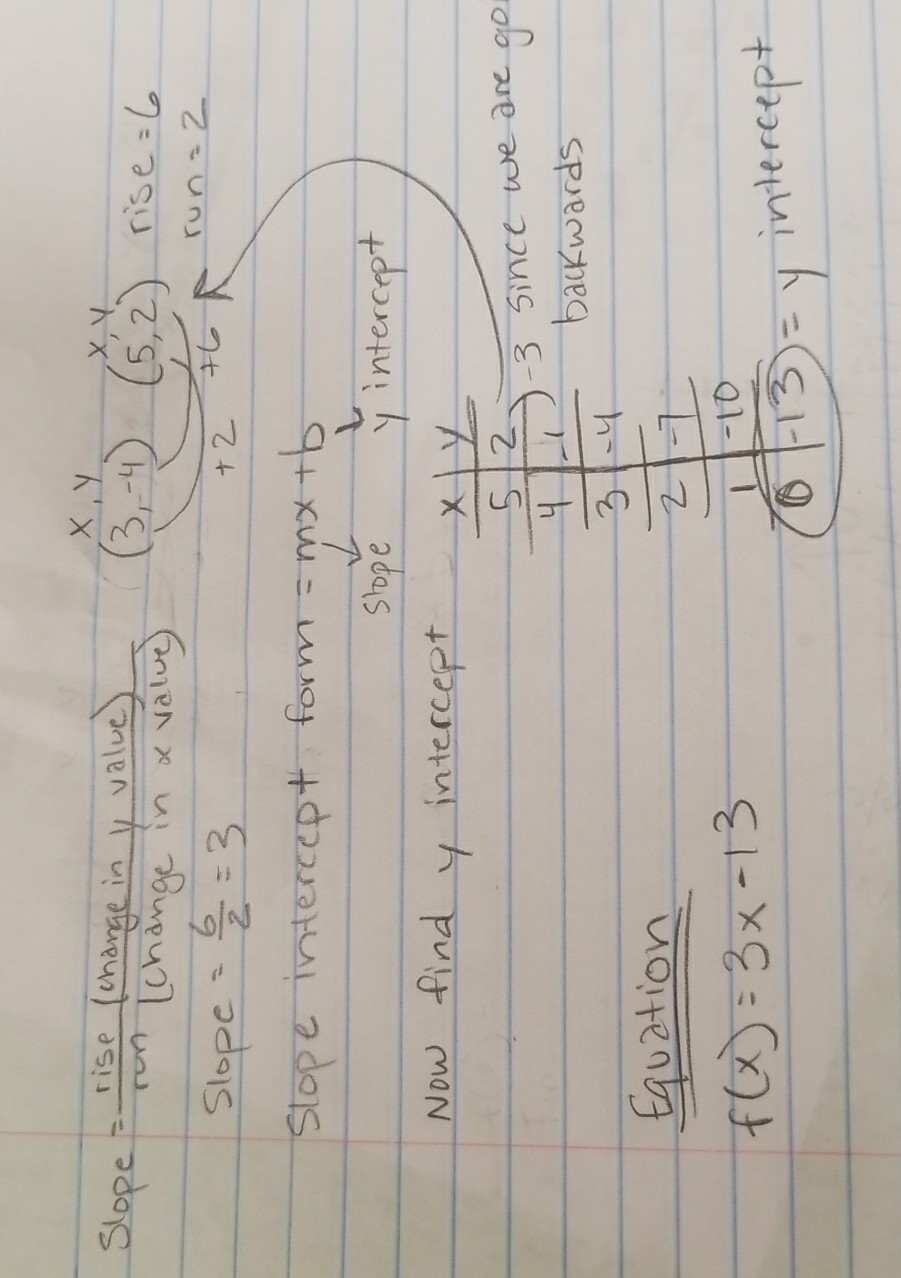 Slope = rise (change in y value)
run (change in x value)
x, y x y
(3, -4) (5, 2) rise = 6
+2 +6 run = 2
Slope = 6/2 = 3
Slope intercept form = mx + b
slope y intercept
Now find y intercept
x | y
5 | 2
4 | -1 ) -3 since we are
3 | -4 backwards
2 | -7
1 | -10
0 | -13 = y intercept
Equation
f(x) = 3x - 13